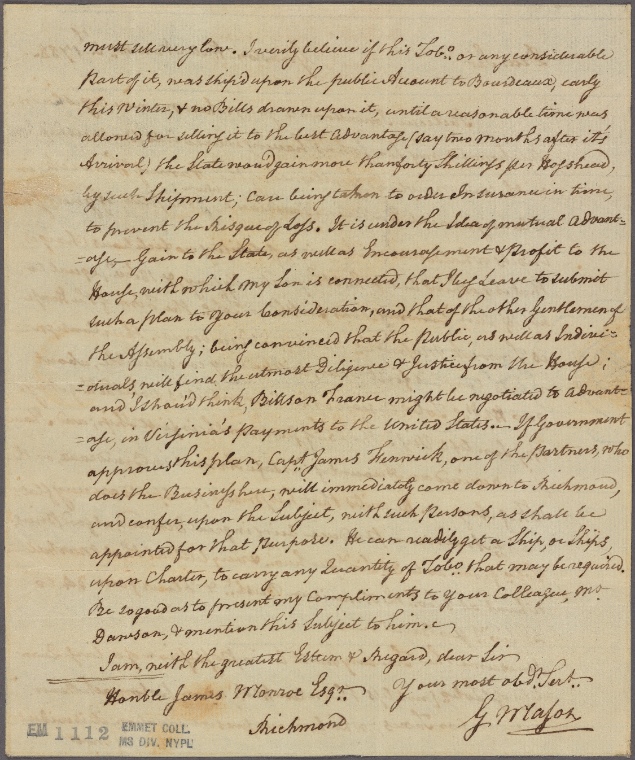 must sell very low. I verily believe if this Tobo. or any considerable
Part of it, was ship'd upon the public Account to Bourdeaux, early
this Winter, & no Bills drawn upon it, until a reasonable time was
allowed for selling it to the best Advantage (say two months after it's
Arrival) the State wou'd gain more than forty Shillings per Hogshead,
by such Shipment; Care being taken to order Insurance in time,
to prevent the Risque of Loss. It is under the Idea of mutual Advant=
=age, Gain to the State, as well as Encouragement & Profit to the
House, with which my Son is connected, that I beg Leave to submit
such a plan to Your Consideration, and that of the other Gentlemen of
the Assembly; being convinced that the Public, as well as Indivi=
=duals will find the utmost Diligence & Justice from the House;
and I shou'd think, Bills on France might be negotiated to Advant=
=age, in Virginia's Payments to the United States. If Government
approves this plan, Capt. James Fenwick, one of the Partners, who
does the Business here, will immediately come down to Richmond,
and confer, upon the Subject, with such Persons, as shall be
appointed for that Purpose. He can readily get a Ship, or Ships,
upon Charter, to carry any Quantity of Tobo. that may be required.
Be so good as to present my Compliments to Your Colleague, Mr.
Dawson, & mention this Subject to him.
I am, with the greatest Esteem & Regard, dear Sir
Honble James Monroe Esqr. Your most obdt. Sert.
Richmond G Mason
EM 1112 EMMET COLL.
MS DIV. NYPL